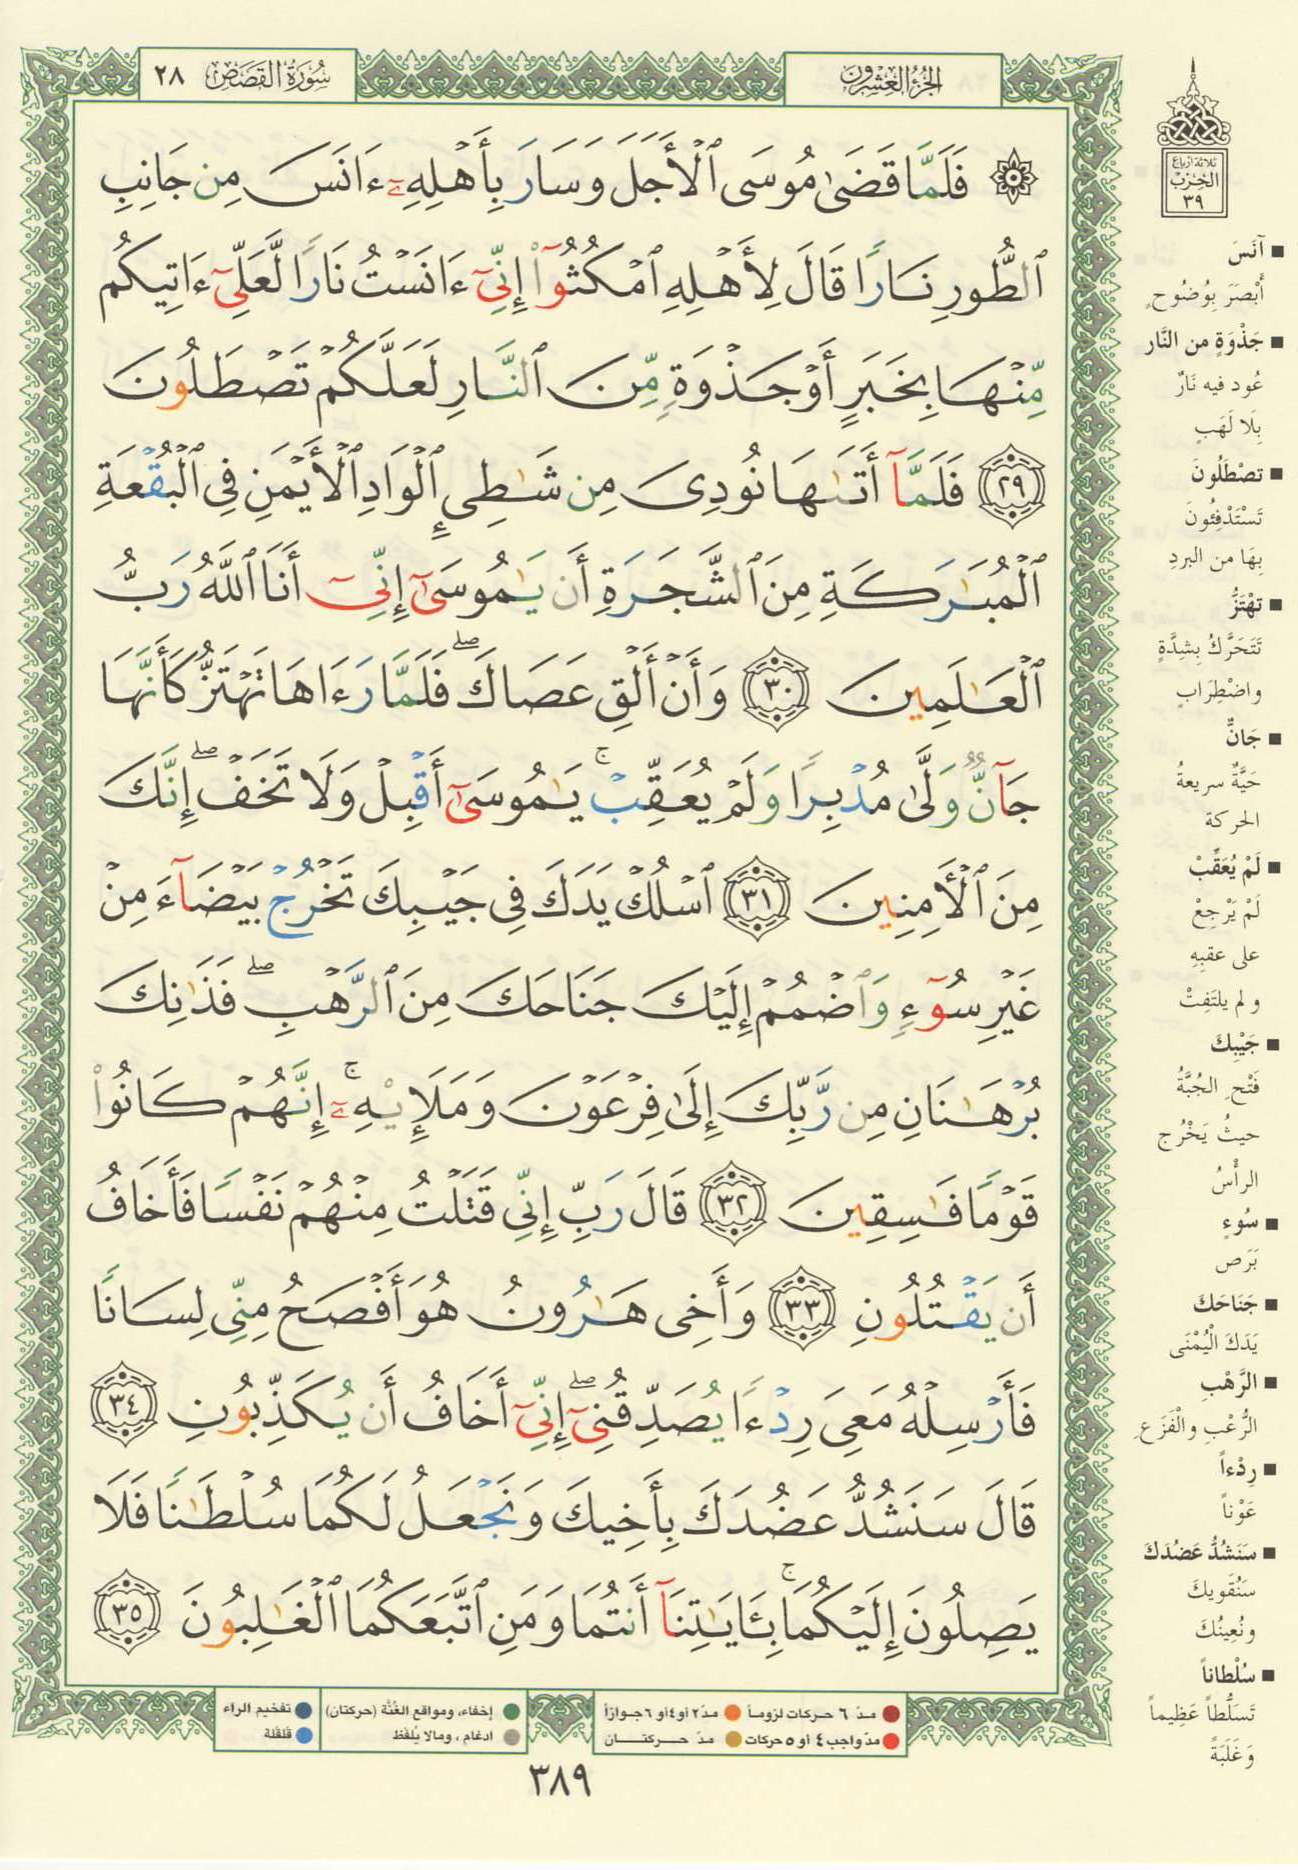 سُورَةُ القَصَصِ ٢٨
الجُزْءُ العِشْرُونَ
ثلاثة أرباع
الحِزْب
٣٩
۞ فَلَمَّا قَضَىٰ مُوسَى ٱلْأَجَلَ وَسَارَ بِأَهْلِهِۦٓ ءَانَسَ مِن جَانِبِ
ٱلطُّورِ نَارًا قَالَ لِأَهْلِهِ ٱمْكُثُوٓا۟ إِنِّىٓ ءَانَسْتُ نَارًا لَّعَلِّىٓ ءَاتِيكُم
مِّنْهَا بِخَبَرٍ أَوْ جَذْوَةٍ مِّنَ ٱلنَّارِ لَعَلَّكُمْ تَصْطَلُونَ
٢٩ فَلَمَّآ أَتَىٰهَا نُودِىَ مِن شَـٰطِئِ ٱلْوَادِ ٱلْأَيْمَنِ فِى ٱلْبُقْعَةِ
ٱلْمُبَـٰرَكَةِ مِنَ ٱلشَّجَرَةِ أَن يَـٰمُوسَىٰٓ إِنِّىٓ أَنَا ٱللَّهُ رَبُّ
ٱلْعَـٰلَمِينَ ٣٠ وَأَنْ أَلْقِ عَصَاكَ ۖ فَلَمَّا رَءَاهَا تَهْتَزُّ كَأَنَّهَا
جَآنٌّ وَلَّىٰ مُدْبِرًا وَلَمْ يُعَقِّبْ ۚ يَـٰمُوسَىٰٓ أَقْبِلْ وَلَا تَخَفْ ۖ إِنَّكَ
مِنَ ٱلْـَٔامِنِينَ ٣١ ٱسْلُكْ يَدَكَ فِى جَيْبِكَ تَخْرُجْ بَيْضَآءَ مِنْ
غَيْرِ سُوٓءٍ وَٱضْمُمْ إِلَيْكَ جَنَاحَكَ مِنَ ٱلرَّهْبِ ۖ فَذَٰنِكَ
بُرْهَـٰنَانِ مِن رَّبِّكَ إِلَىٰ فِرْعَوْنَ وَمَلَإِي۟هِۦٓ ۚ إِنَّهُمْ كَانُوا۟
قَوْمًا فَـٰسِقِينَ ٣٢ قَالَ رَبِّ إِنِّى قَتَلْتُ مِنْهُمْ نَفْسًا فَأَخَافُ
أَن يَقْتُلُونِ ٣٣ وَأَخِى هَـٰرُونُ هُوَ أَفْصَحُ مِنِّى لِسَانًا
فَأَرْسِلْهُ مَعِىَ رِدْءًا يُصَدِّقُنِىٓ ۖ إِنِّىٓ أَخَافُ أَن يُكَذِّبُونِ ٣٤
قَالَ سَنَشُدُّ عَضُدَكَ بِأَخِيكَ وَنَجْعَلُ لَكُمَا سُلْطَـٰنًا فَلَا
يَصِلُونَ إِلَيْكُمَا ۚ بِـَٔايَـٰتِنَآ أَنتُمَا وَمَنِ ٱتَّبَعَكُمَا ٱلْغَـٰلِبُونَ ٣٥
■ آنَسَ
أَبْصَرَ بِوُضُوحٍ
■ جَذْوَةٍ من النَّار
عُود فيه نَارٌ
بِلَا لَهَبٍ
■ تصْطَلُونَ
تَسْتَدْفِئُونَ
بِهَا من البردِ
■ تهْتَزُّ
تَتَحَرَّكُ بِشِدَّةٍ
واضْطِرَابٍ
■ جَانٌّ
حَيَّةٌ سريعةُ
الحركة
■ لَمْ يُعَقِّبْ
لَمْ يَرْجِعْ
على عقبِهِ
ولم يلتَفِتْ
■ جَيْبِكَ
فَتْحِ الجُبَّةُ
حيثُ يَخْرُج
الرأْسُ
■ سُوءٍ
بَرَص
■ جَنَاحَكَ
يَدَكَ الْيُمْنَى
■ الرَّهْبِ
الرُّعْبِ والْفَزَعِ
■ رِدْءاً
عَوْناً
■ سَنَشُدُّ عَضُدَكَ
سَنُقَوِيكَ
ونُعِينُكَ
■ سُلْطاناً
تَسَلُّطاً عَظِيماً
وَغَلَبَةً
مدّ ٦ حركات لزوماً
مدّ ٢ أو ٤ أو ٦ جوازاً
مدّ واجب ٤ أو ٥ حركات
مدّ حركتان
إخفاء، ومواقع الغُنَّة (حركتان)
ادغام، ومالا يُلفَظ
تفخيم الراء
قلقلة
٣٨٩